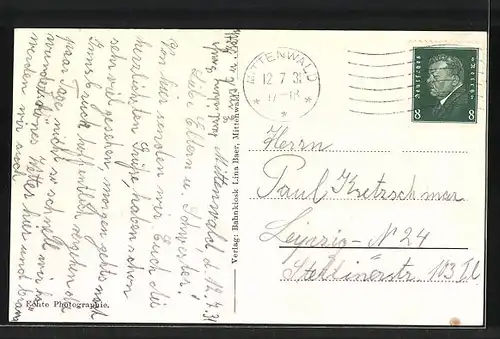 Mittenwald d. 12.7.31
Liebe Eltern u. Schwester!
Von hier senden wir Euch die
herzlichsten Grüße, haben schon
sehr viel gesehen, morgen gehts nach
Innsbruck, hoffentlich vergehen die
paar Tage nicht so schnell wir haben
wunderschönes Wetter hier und braun
werden wir auch
Echte Photographie.
Verlag: Bahnkiosk Lina Baer, Mittenwald.
MITTENWALD
12.7.31
17-18
Deutsches Reich
8 8
Herrn
Paul Kretzschmar
Leipzig-N 24
Stettinerstr 103 II